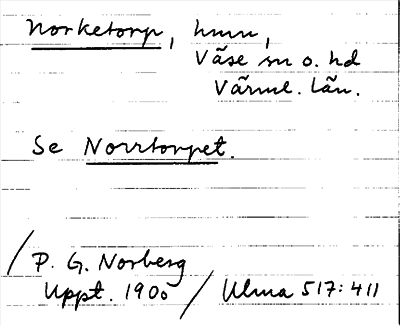 Norketorp, hmn,
Väse sn o. hd
Värml. län.
Se Norrtorpet.
/ P. G. Norberg
Uppt. 1900 / Ulma 517:411